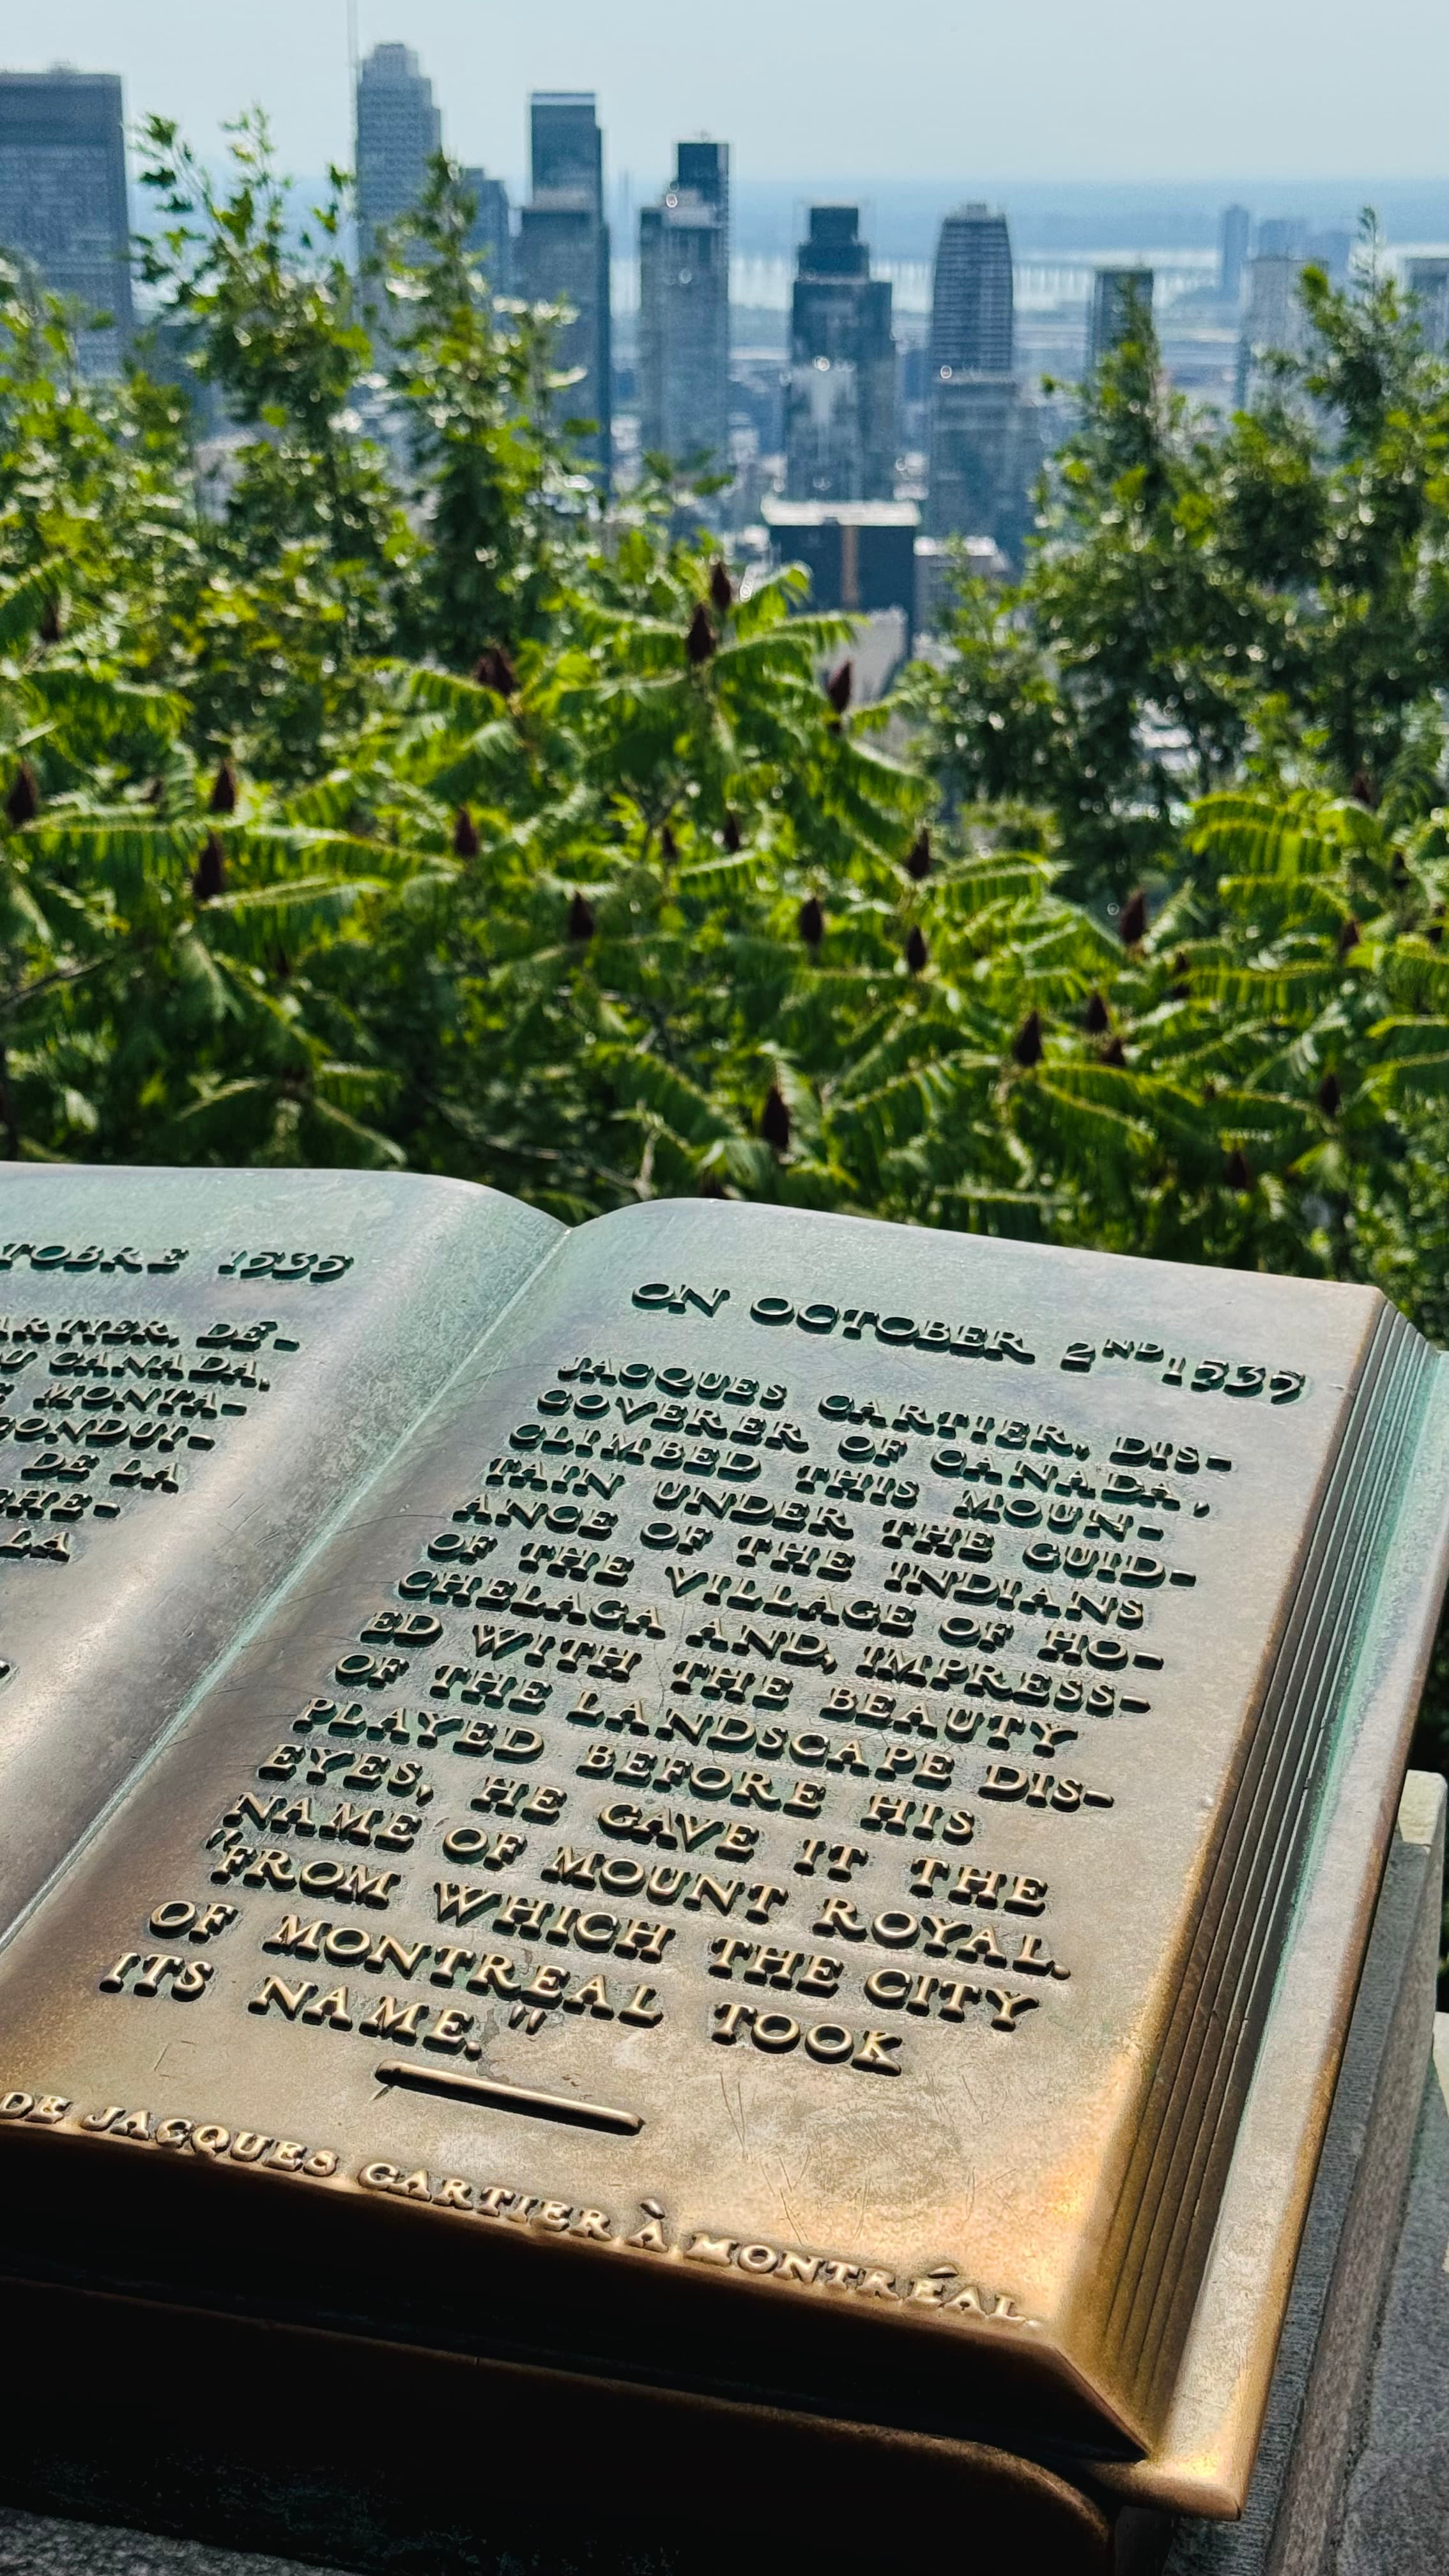 TOBRE 1535
ARTIER, DÉ-
U CANADA,
MONTA-
CONDUI-
DE LA
CHE-
LA
ON OCTOBER 2ND 1535
JACQUES CARTIER, DIS-
COVERER OF CANADA,
CLIMBED THIS MOUN-
TAIN UNDER THE GUID-
ANCE OF THE INDIANS
OF THE VILLAGE OF HO-
CHELAGA AND, IMPRESS-
ED WITH THE BEAUTY
OF THE LANDSCAPE DIS-
PLAYED BEFORE HIS
EYES, HE GAVE IT THE
NAME OF MOUNT ROYAL.
"FROM WHICH THE CITY
OF MONTREAL TOOK
ITS NAME."
DE JACQUES CARTIER À MONTRÉAL.